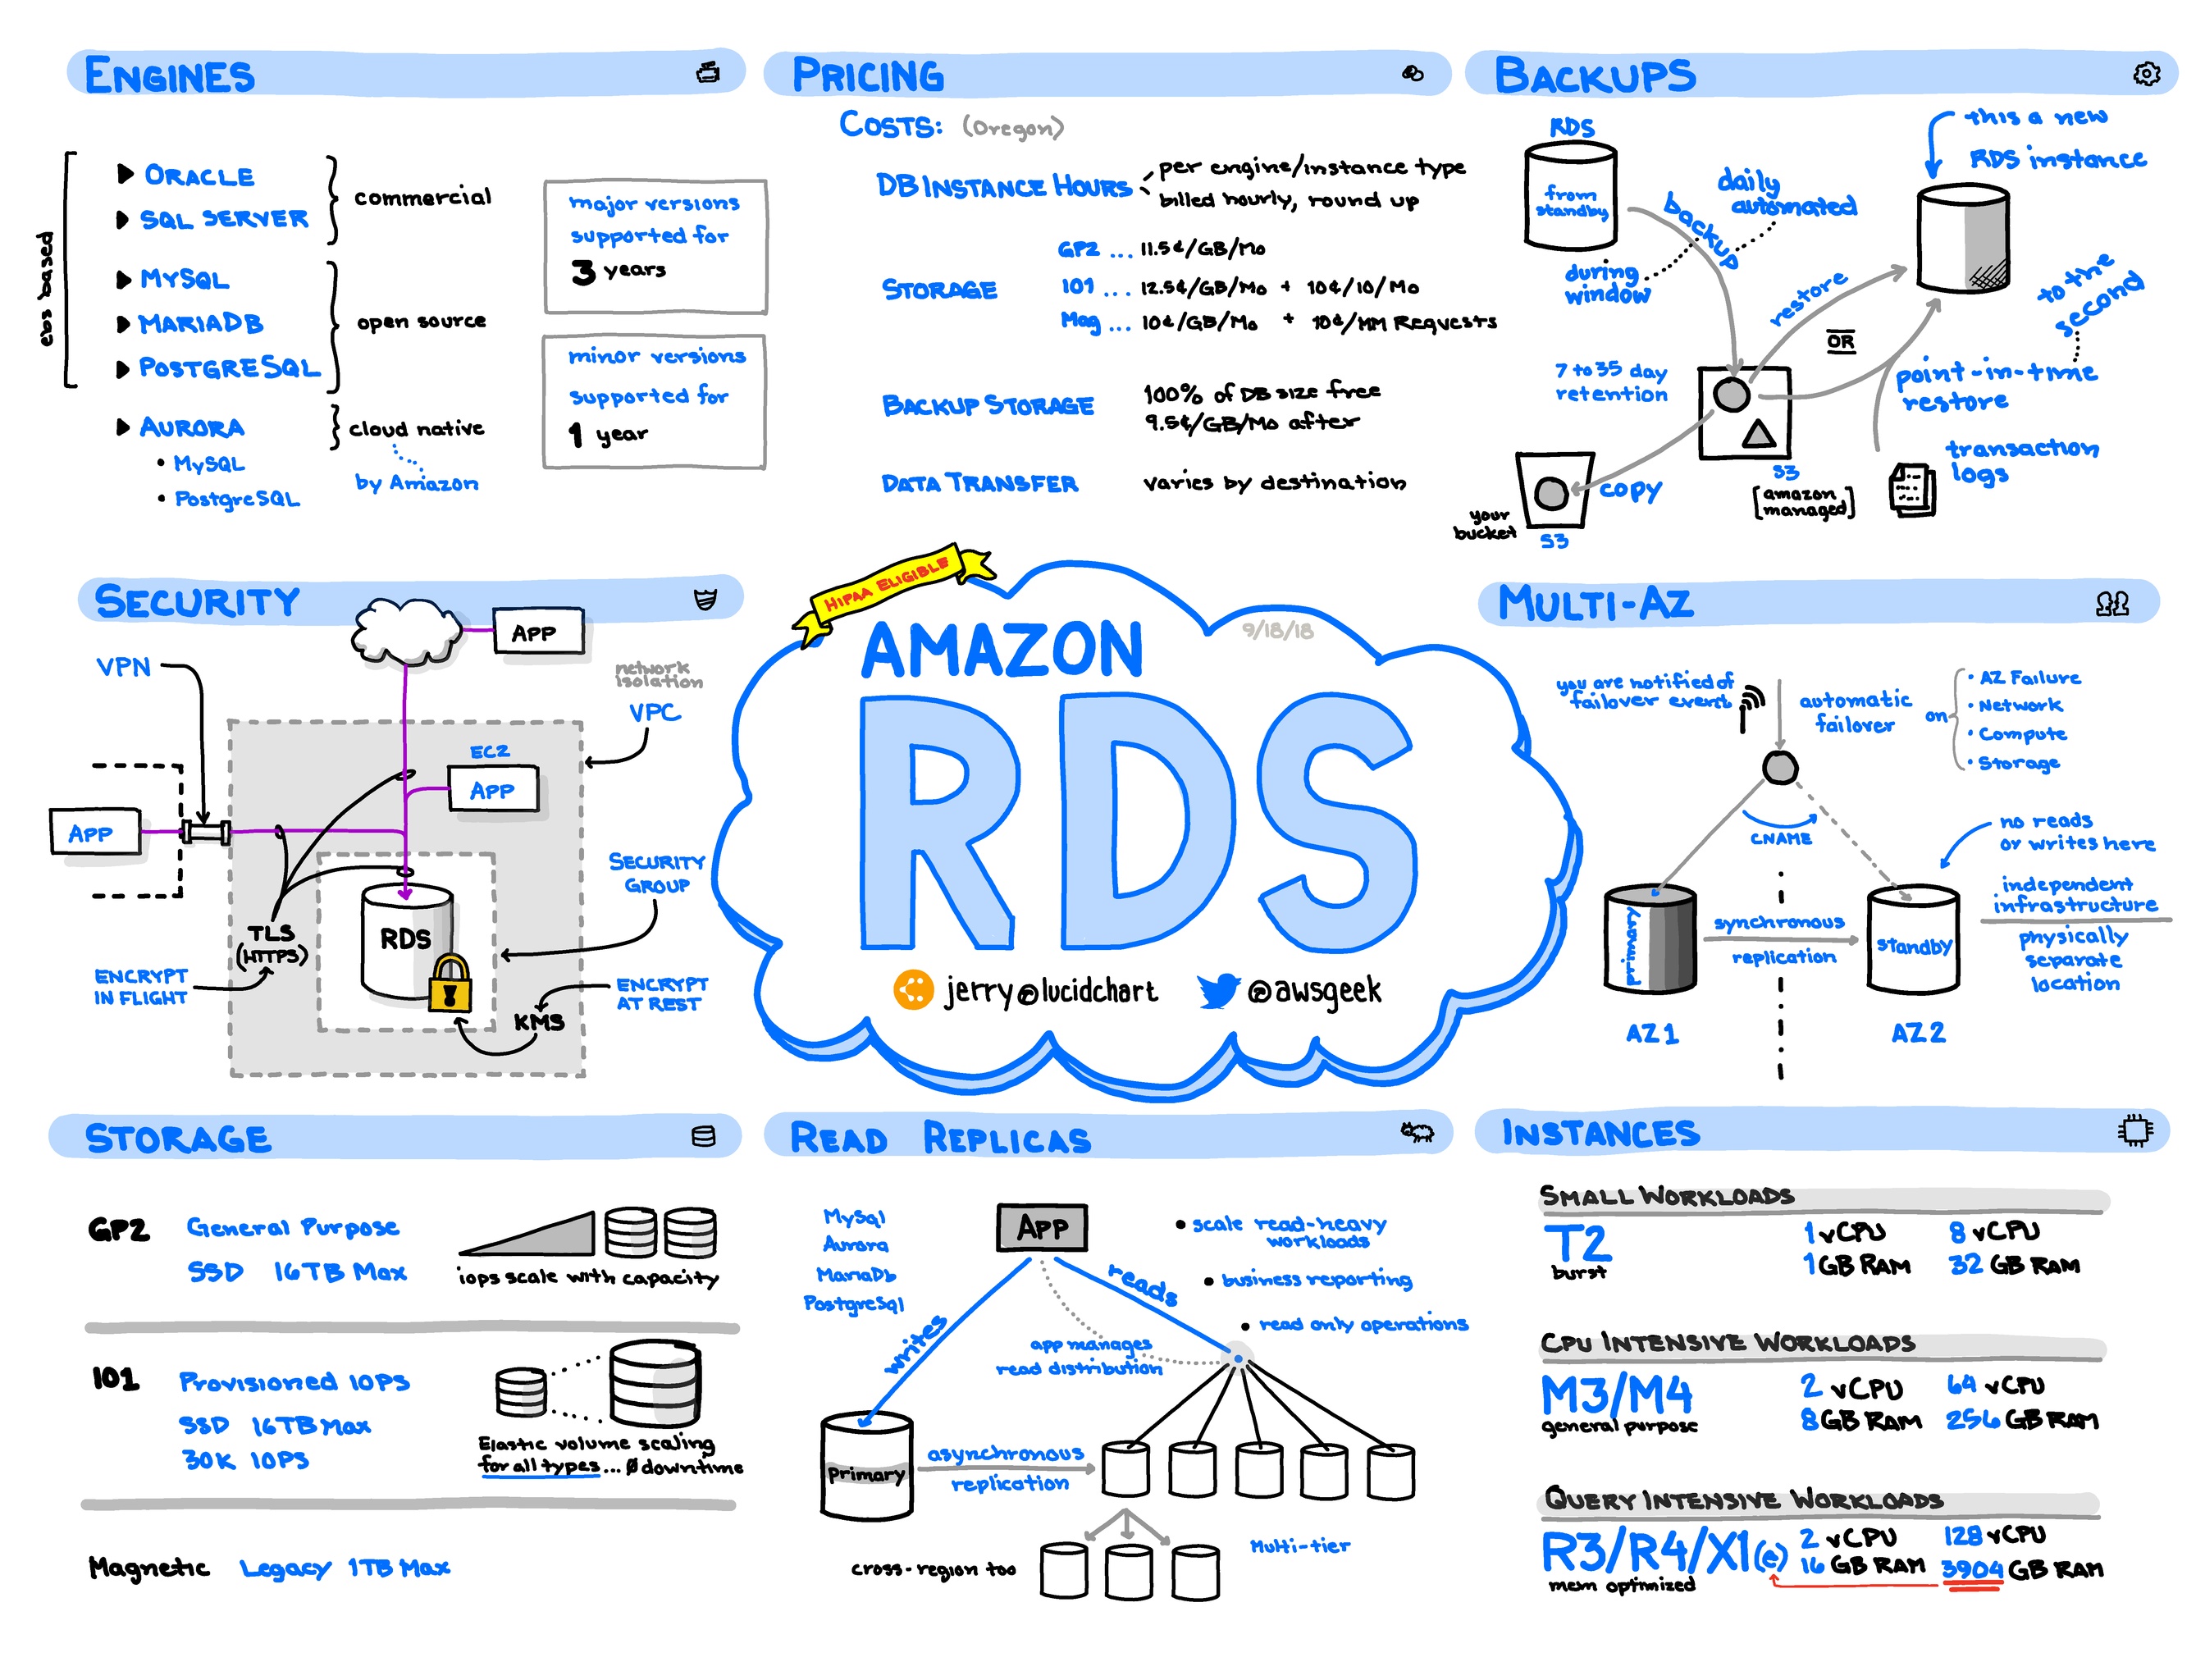 ENGINES
ebs based
ORACLE
SQL SERVER
commercial
MySQL
MARIADB
POSTGRESQL
open source
AURORA
• MySQL
• PostgreSQL
cloud native
by Amazon
major versions
supported for
3 years
minor versions
supported for
1 year
PRICING
COSTS: (Oregon)
DB INSTANCE HOURS
per engine/instance type
billed hourly, round up
STORAGE
GP2 ... 11.5¢/GB/Mo
IO1 ... 12.5¢/GB/Mo + 10¢/IO/Mo
Mag ... 10¢/GB/Mo + 10¢/MM Requests
BACKUP STORAGE
100% of DB size free
9.5¢/GB/Mo after
DATA TRANSFER
varies by destination
BACKUPS
RDS
from
standby
backup
daily
automated
during
window
this a new
RDS instance
restore
OR
to the
second
point-in-time
restore
7 to 35 day
retention
transaction
logs
S3
[amazon
managed]
copy
your
bucket
S3
SECURITY
APP
VPN
network
isolation
VPC
EC2
APP
APP
SECURITY
GROUP
RDS
TLS
(HTTPS)
ENCRYPT
IN FLIGHT
ENCRYPT
AT REST
KMS
HIPAA ELIGIBLE
AMAZON
9/18/18
RDS
jerry@lucidchart
@awsgeek
MULTI-AZ
you are notified of
failover event
automatic
failover
on
• AZ Failure
• Network
• Compute
• Storage
CNAME
no reads
or writes here
primary
synchronous
replication
standby
independent
infrastructure
physically
separate
location
AZ 1
AZ 2
STORAGE
GP2
General Purpose
SSD 16TB Max
iops scale with capacity
IO1
Provisioned IOPS
SSD 16TB Max
30K IOPS
Elastic volume scaling
for all types... Ø downtime
Magnetic Legacy 1TB Max
READ REPLICAS
MySql
Aurora
MariaDb
PostgreSql
APP
writes
reads
• scale read-heavy
workloads
• business reporting
• read only operations
app manages
read distribution
Primary
asynchronous
replication
cross-region too
Multi-tier
INSTANCES
SMALL WORKLOADS
T2
burst
1 vCPU
1 GB RAM
8 vCPU
32 GB RAM
CPU INTENSIVE WORKLOADS
M3/M4
general purpose
2 vCPU
8 GB RAM
64 vCPU
256 GB RAM
QUERY INTENSIVE WORKLOADS
R3/R4/X1(e)
mem optimized
2 vCPU
16 GB RAM
128 vCPU
3904 GB RAM